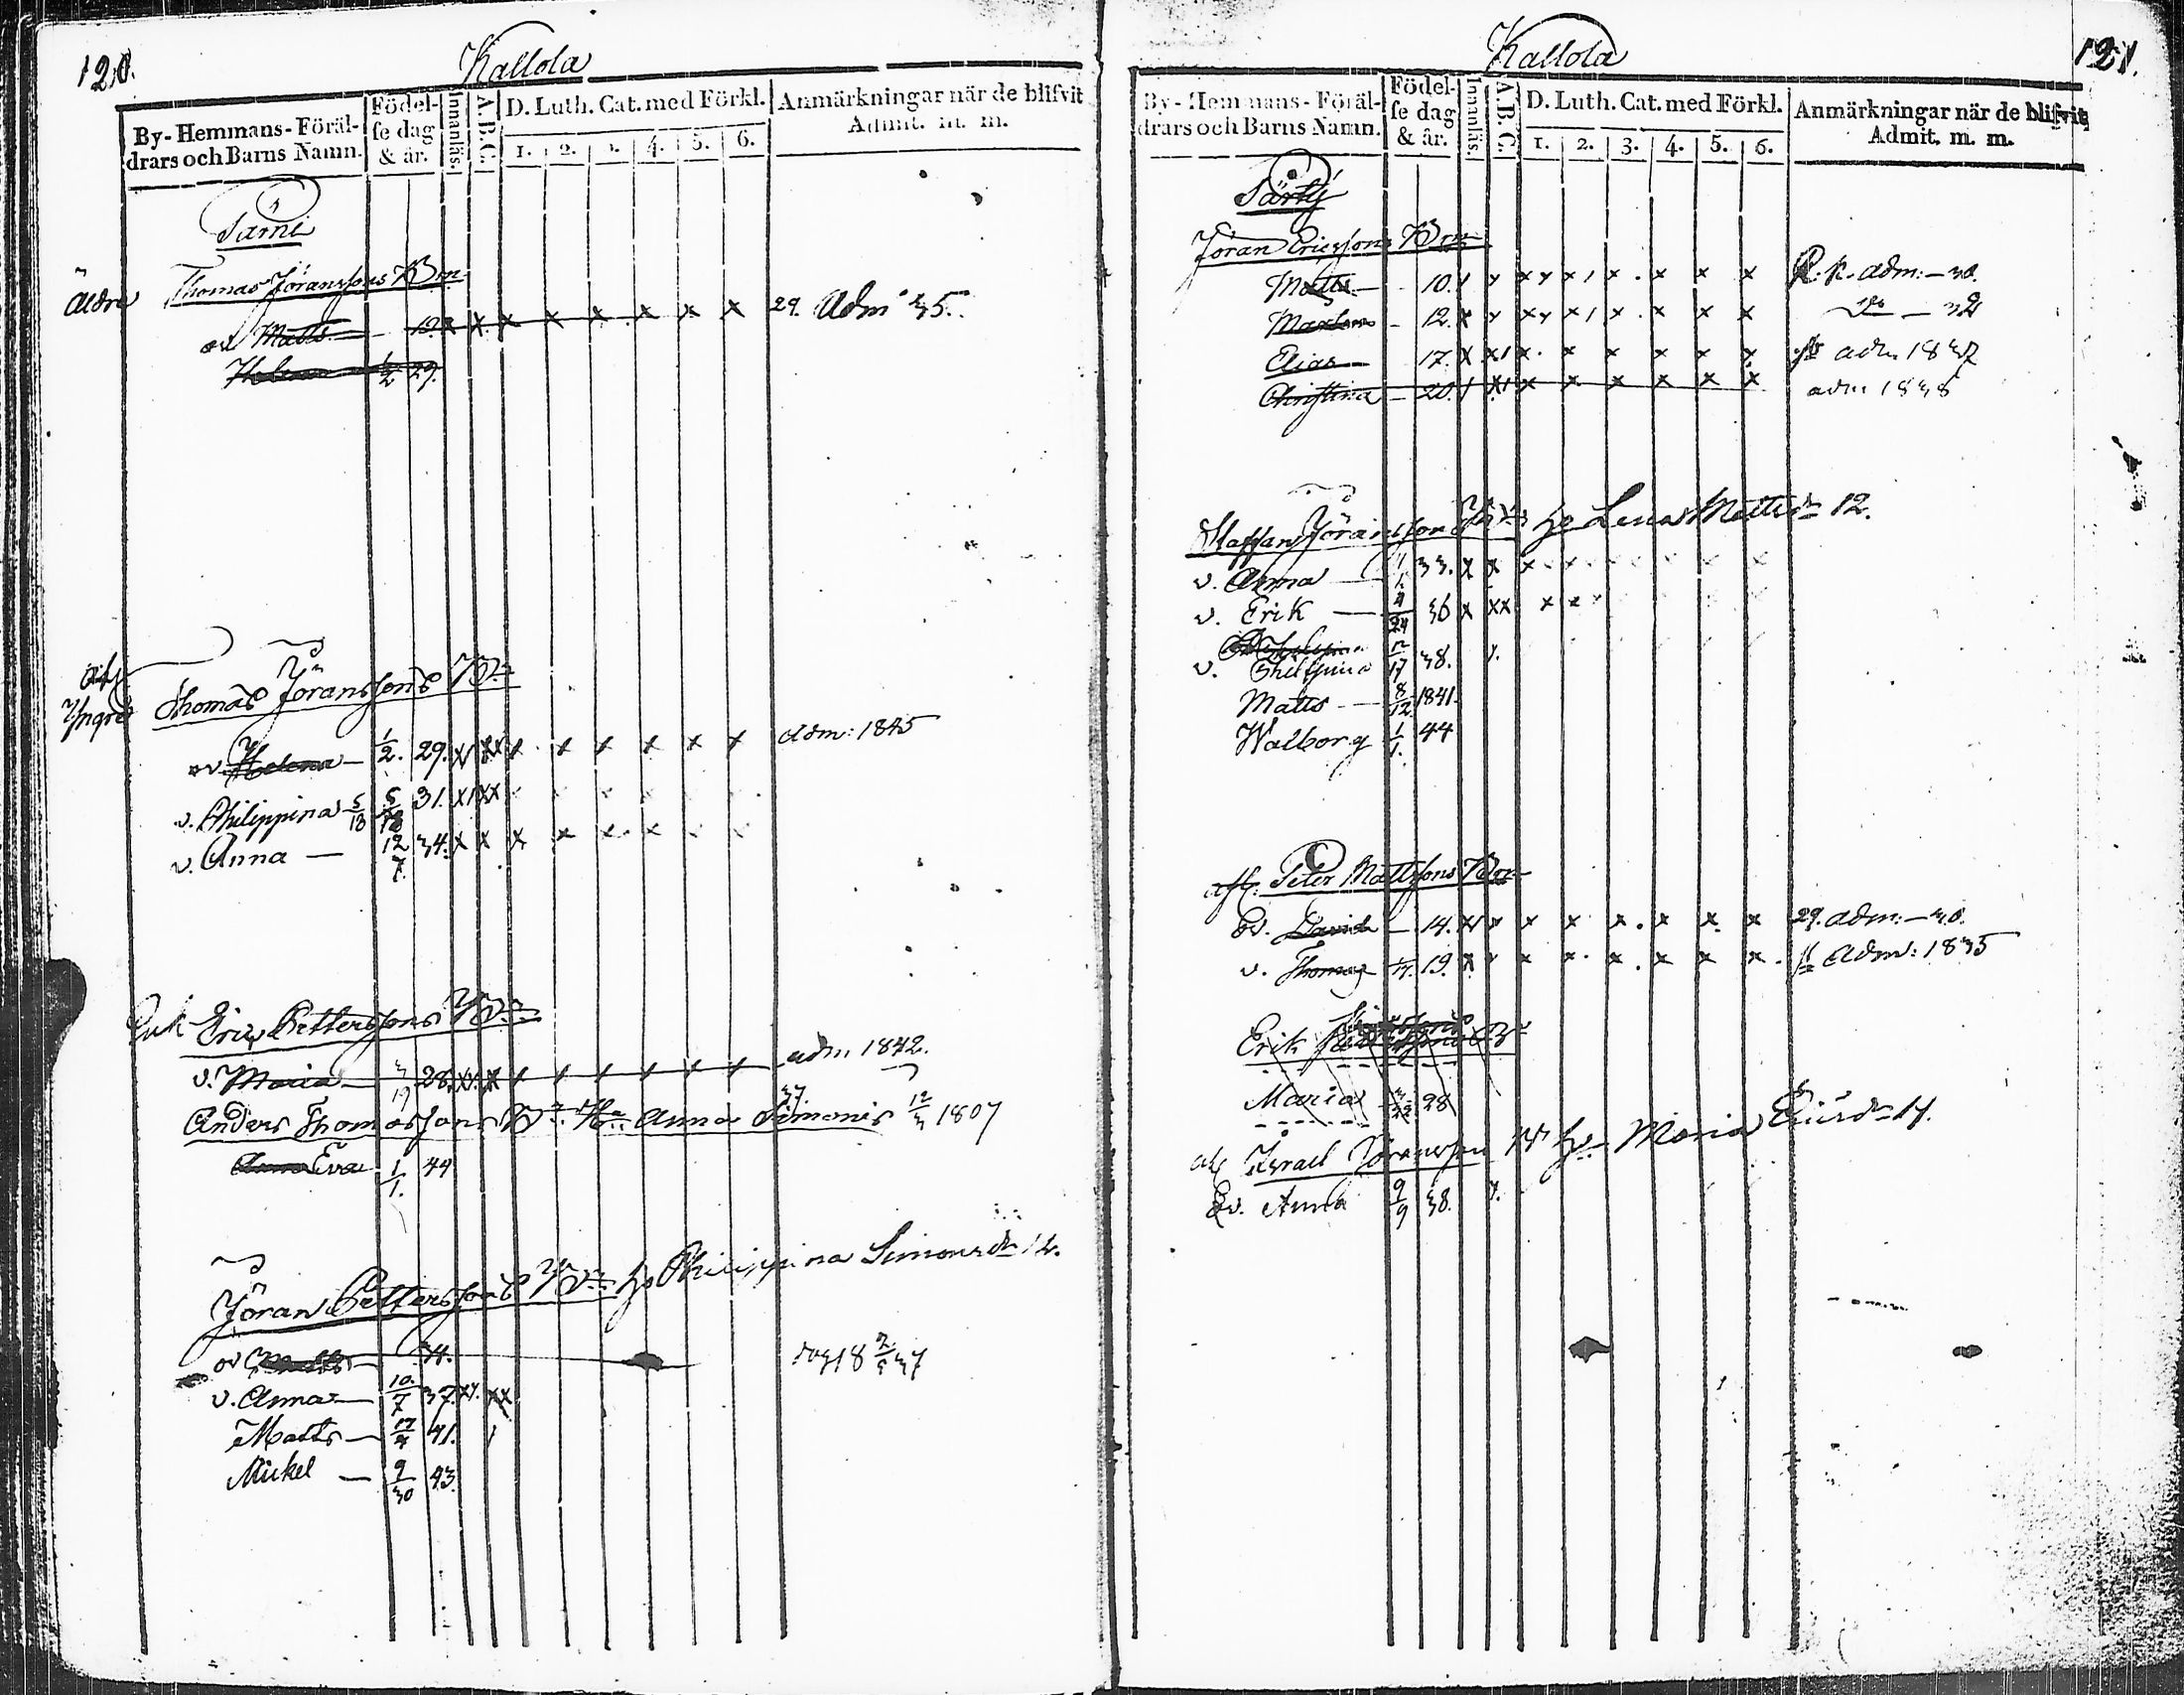 120.
Kallola
By-Hemmans-Föräl-
drars och Barns Namn.
Födel-
se dag
& år.
Innanläs.
A.B.C.
D. Luth. Cat. med Förkl.
1. 2. 3. 4. 5. 6.
Anmärkningar när de blifvit
Admit. m. m.
Särni
äldre Thomas Jöranssons Brn
ov Matts 12. x x x x x x x x 29. Adm 35.
Helena 1/2 29.
Yngre Thomas Jöranssons Brn
ov. Helena — 1/2. 29. x x x x x x adm: 1845
v. Philippina 5/18 5/18 31. x x x x
v. Anna — 12/7. 34. x x x x x x
Enk Eric Petterssons Brn
v. Maria — 3/19 28. adm 1842.
Anders Thomassons Bn Hu Anna Simonsdr 12/3 1807
Anna Eva 1/1. 44
Jöran Petterssons Brn h. Philippina Simonsdr 12.
ov Matts 34.
v. Anna — 10/7 37. xx. xx
Matts — 17/4 41.
Mickel — 9/30 43.
121.
Kallola
By-Hemmans-Föräl-
drars och Barns Namn.
Födel-
se dag
& år.
Innanläs.
A.B.C.
D. Luth. Cat. med Förkl.
1. 2. 3. 4. 5. 6.
Anmärkningar när de blifvit
Admit. m. m.
Särkj
Jöran Ericssons Brn
Matts — 10. x x x x x x adm: — 30.
12. x x x x x x — 32
Elias — 17. x x x x x x adm 1837
Christina — 20. x x x x x x adm 1838
Staffan Jöransson Brn h. Lena Mattsdr 12.
v. Anna — 1/1 33. x x x
v. Erik — 4/24 36 x xx x x
v. Philippina 12/17 38.
Matts — 8/12 1841.
Walborg 1/1. 44
afl. Peter Mattssons Brn
Ov. David — 14. x x x x x x 29. adm: — 30.
v. Thomas 19. x x x x x x adm: 1835
Erik
Maria 3/22 28
afl Israel Jöransson h. Maria Ericsdr 17.
Ov. Anna 9/9 38.